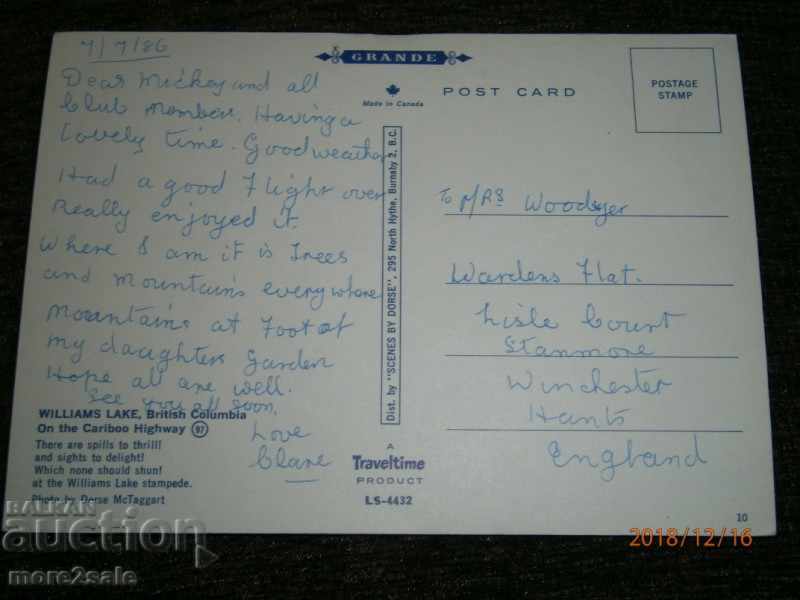 7/7/86
Dear Mickey and all
Club members. Having a
lovely time. Good weather
Had a good Flight over
Really enjoyed it.
Where I am it is Trees
and mountains everywhere
mountains at Foot of
my daughters Garden
Hope all are well.
See you all soon,
Love
Clare
WILLIAMS LAKE, British Columbia
On the Cariboo Highway 97
There are spills to thrill!
and sights to delight!
Which none should shun!
at the Williams Lake stampede.
Photo by Dorse McTaggart
GRANDE
Made in Canada
POST CARD
POSTAGE
STAMP
Dist. by "SCENES BY DORSE", 295 North Hythe, Burnaby 2, B.C.
To MRS Woodyer
Wardens Flat.
Lisle Court
Stanmore
Winchester
Hants
England
A
Traveltime
PRODUCT
LS-4432
10
2018/12/16
BALKAN
auction
more2sale